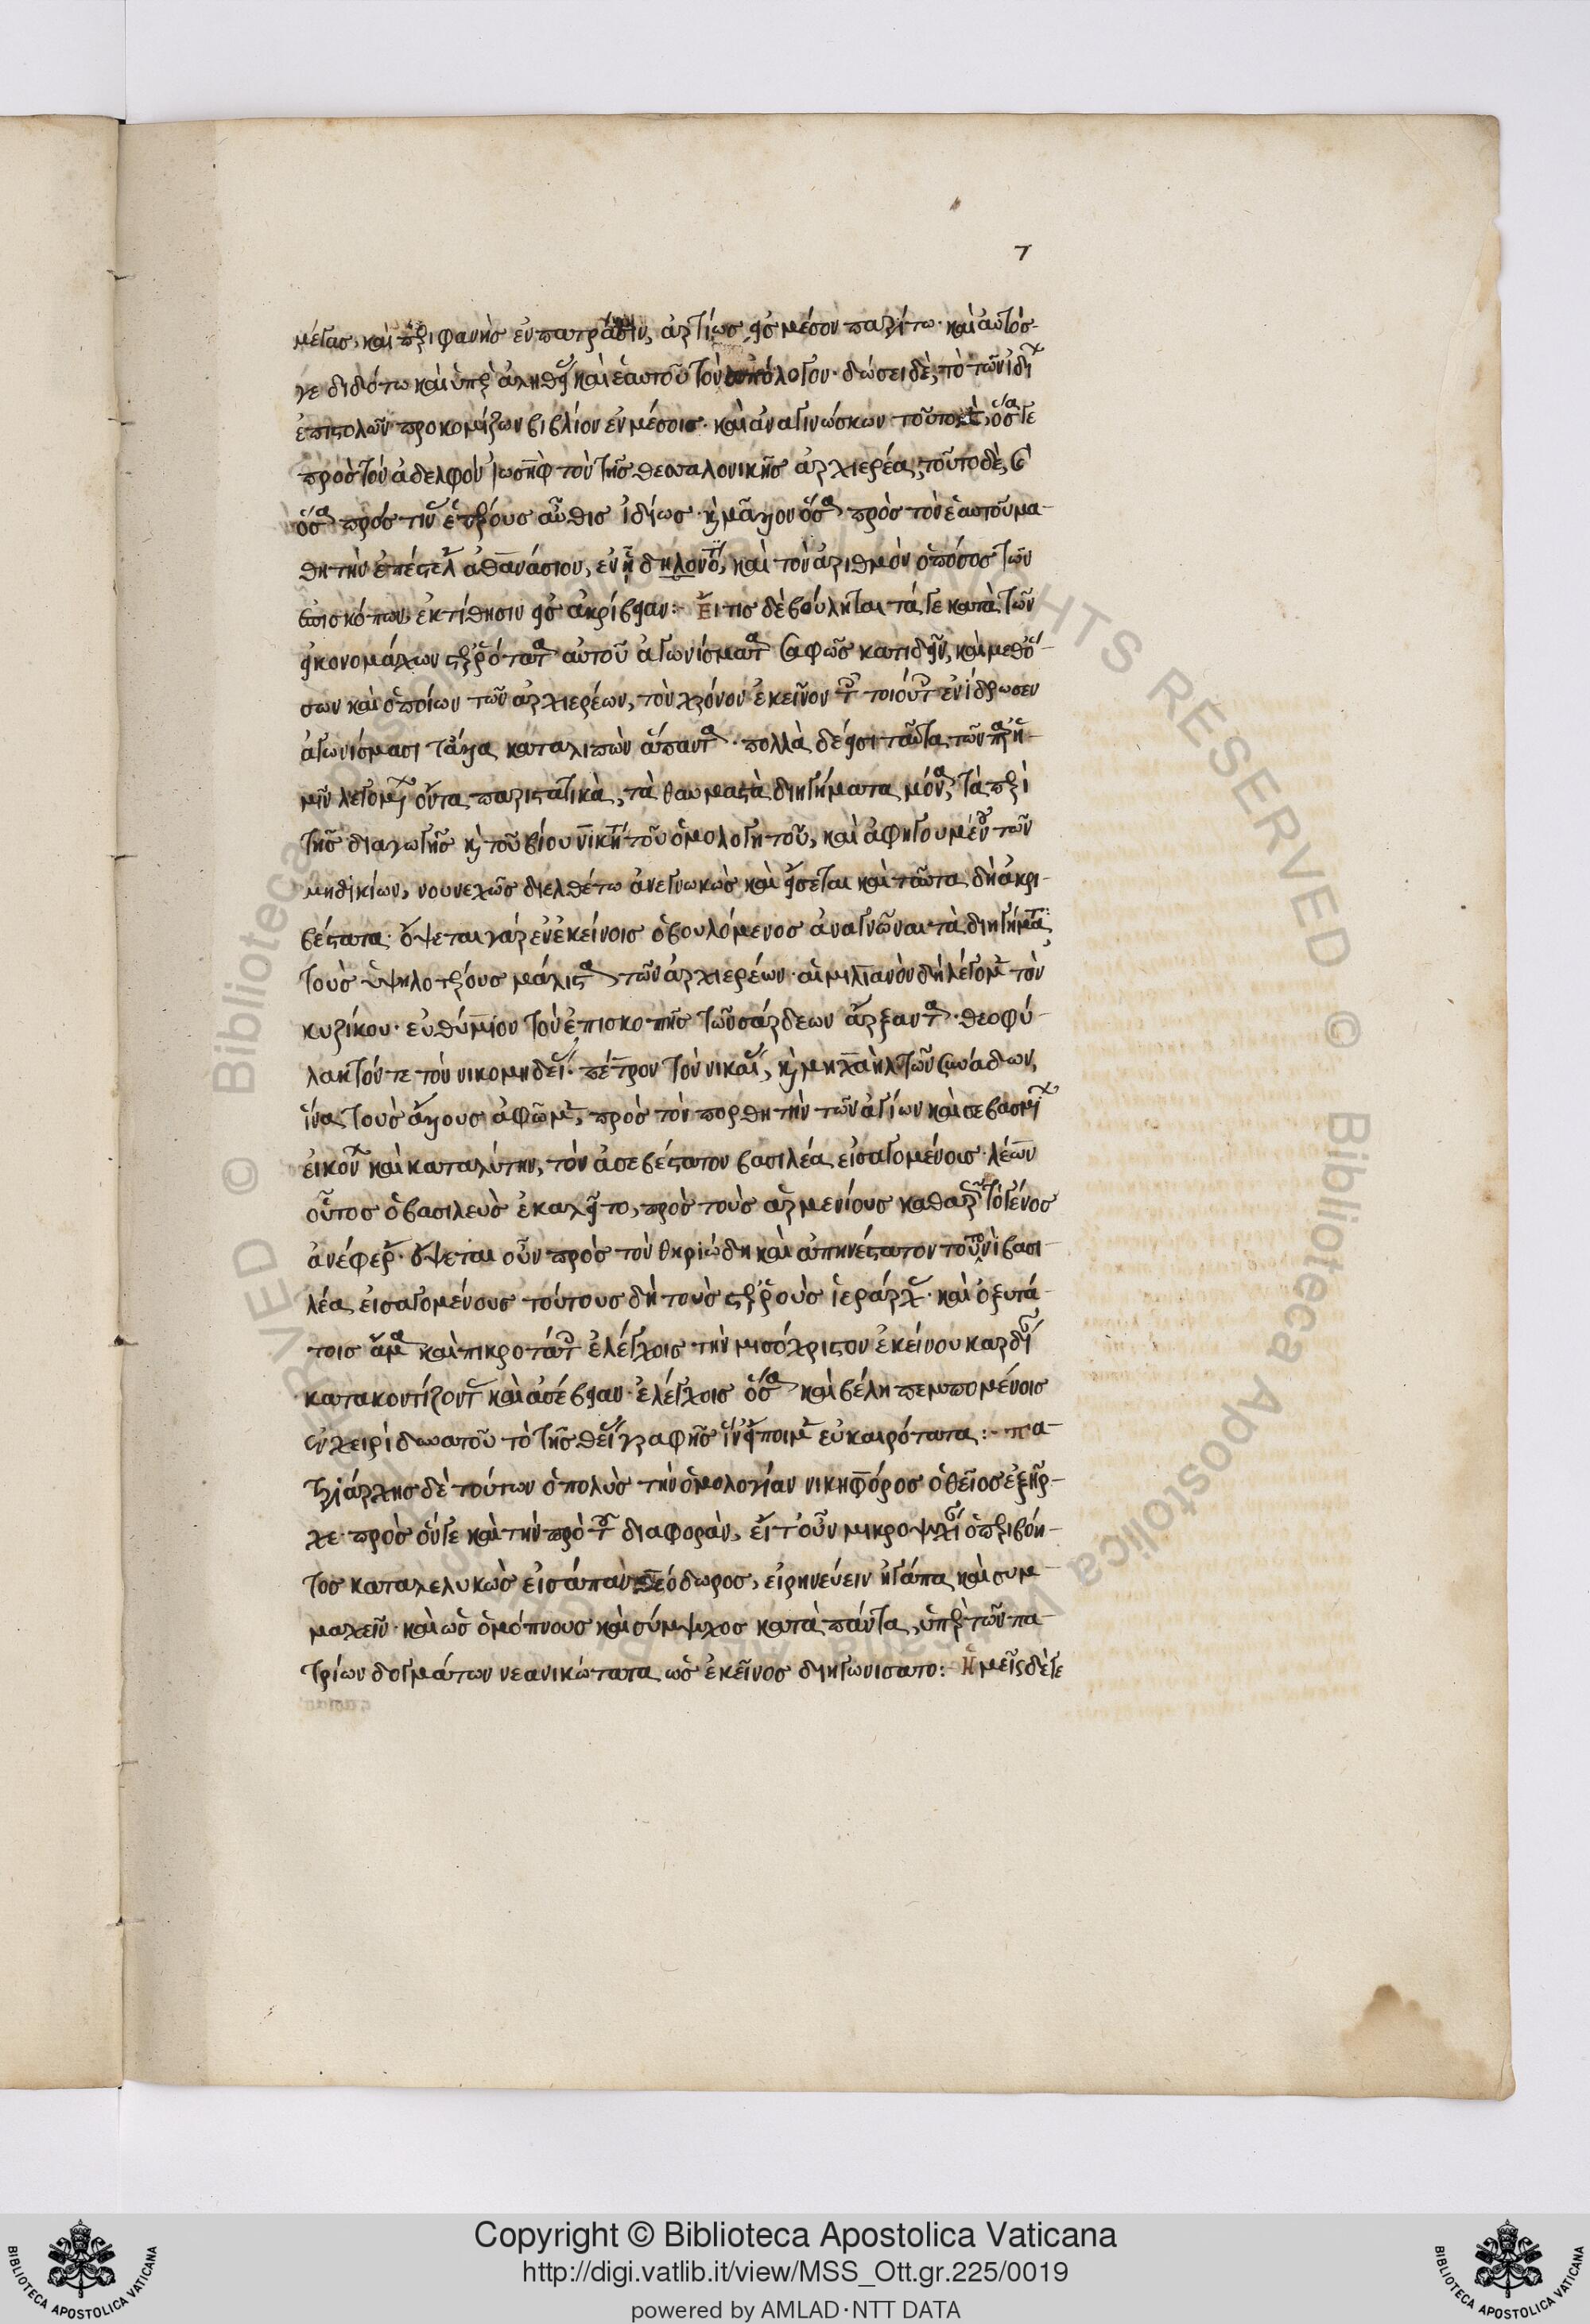 7
μέγας, καὶ περιφανὴς ἐν πατράσιν, ἀρτίως εἰς μέσον παρίτω· καὶ αὐτός
γε διδότω καὶ ὑπὲρ ἀληθείας καὶ ἑαυτοῦ τὸν ἀπόλογον· δώσει δὲ, τὸ τῶν ἰδίων
ἐπιστολῶν προκομίζων βιβλίον ἐν μέσοις· καὶ ἀναγινώσκων τοῦτο μὲν, ὅσα γε
πρὸς τὸν ἀδελφὸν ἰωσὴφ τὸν τῆς θεσσαλονίκης ἀρχιερέα, τοῦτο δὲ,
ὅσα πρός τινας ἑτέρους αὖθις ἰδίως· καὶ μᾶλλον ὅσα πρὸς τὸν ἑαυτοῦ μα-
θητὴν ἐπέστειλεν ἀθανάσιον, ἐν ᾗ δηλονότι, καὶ τὸν ἀριθμὸν ὁπόσος τῶν
ἐπισκόπων, ἐκτίθησιν εἰς ἀκρίβειαν:- Εἴ τις δὲ βούληται τά γε κατὰ τῶν
εἰκονομάχων στερρότατα αὐτοῦ ἀγωνίσματα σαφῶς κατιδεῖν, καὶ μεθ' ὅ-
σων καὶ ὁποίων τῶν ἀρχιερέων, τὸν χρόνον ἐκεῖνον τοῖς τοιούτοις ἐνίδρωσεν
ἀγωνίσμασι τἄλλα καταλιπὼν ἅπαντα· πολλὰ δέ εἰσι ταῦτα τῶν παρ' ἡ-
μῖν λεγομένων ὄντα παραστατικὰ, τὰ θαυμαστὰ διηγήματα μόνα, τὰ περὶ
τῆς διαγωγῆς καὶ τοῦ βίου νικήτα τοῦ ὁμολογητοῦ, καὶ ἀφηγουμένου τῶν
μηδικίων, νουνεχῶς διελθέτω ἀνεγνωκὼς καὶ εἴσεται καὶ ταῦτα δὴ ἀκρι-
βέστατα· ὄψεται γὰρ ἐν ἐκείνοις ὁ βουλόμενος ἀναγνῶναι τὰ διηγήματα,
τοὺς ὑψηλοτέρους μάλιστα τῶν ἀρχιερέων· αἰμιλιανὸν δὴ λέγομεν τὸν
κυζίκου· εὐθύμιον τὸν ἐπισκοπῆς τῶν σάρδεων ἄρξαντα· θεοφύ-
λακτόν τε τὸν νικομηδείας· πέτρον τὸν νικαίας, καὶ μιχαὴλ τῶν συνάδων,
ἵνα τοὺς ἄλλους ἀφῶμεν, πρὸς τὸν πορθητὴν τῶν ἁγίων καὶ σεβασμίων
εἰκόνων καὶ καταλύτην, τὸν ἀσεβέστατον βασιλέα εἰσαγομένοις· λέων
οὗτος ὁ βασιλεὺς ἐκαλεῖτο, πρὸς τοὺς ἀρμενίους καθαρῶς τὸ γένος
ἀνέφερεν· ὄψεται οὖν πρὸς τὸν θηριώδη καὶ ἀπηνέστατον τουτονὶ βασι-
λέα εἰσαγομένους τούτους δὴ τοὺς στερροὺς ἱεράρχας· καὶ ὀξυτά-
τοις ἅμα καὶ πικροτάτοις ἐλέγχοις τὴν μισόχριστον ἐκείνου καρδίαν
κατακοντίζοντας καὶ ἀσέβειαν· ἐλέγχοις ὅσα καὶ βέλη πεμπομένοις
ἐν χειρὶ δυνατοῦ τὸ τῆς θείας γραφῆς ἵν' εἴποιμεν εὐκαιρότατα:- πα-
τριάρχης δὲ τούτων ὁ πολὺς τὴν ὁμολογίαν νικηφόρος ὁ θεῖος ἐξῆρ-
χε· πρὸς ὅν γε καὶ τὴν πρὸ τοῦ διαφορὰν, εἴτ' οὖν μικροψυχίαν ὁ περιβόη-
τος καταλελυκὼς εἰσάπαν θεόδωρος, εἰρηνεύειν ἠγάπα καὶ συμ-
μαχεῖν· καὶ ὡς ὁμόπνους καὶ σύμψυχος κατὰ πάντα, ὑπὲρ τῶν πα-
τρίων δογμάτων νεανικώτατα ὡς ἐκεῖνος διηγωνίσατο:- Ἡμεῖς δέ γε
Copyright © Biblioteca Apostolica Vaticana
http://digi.vatlib.it/view/MSS_Ott.gr.225/0019
powered by AMLAD·NTT DATA